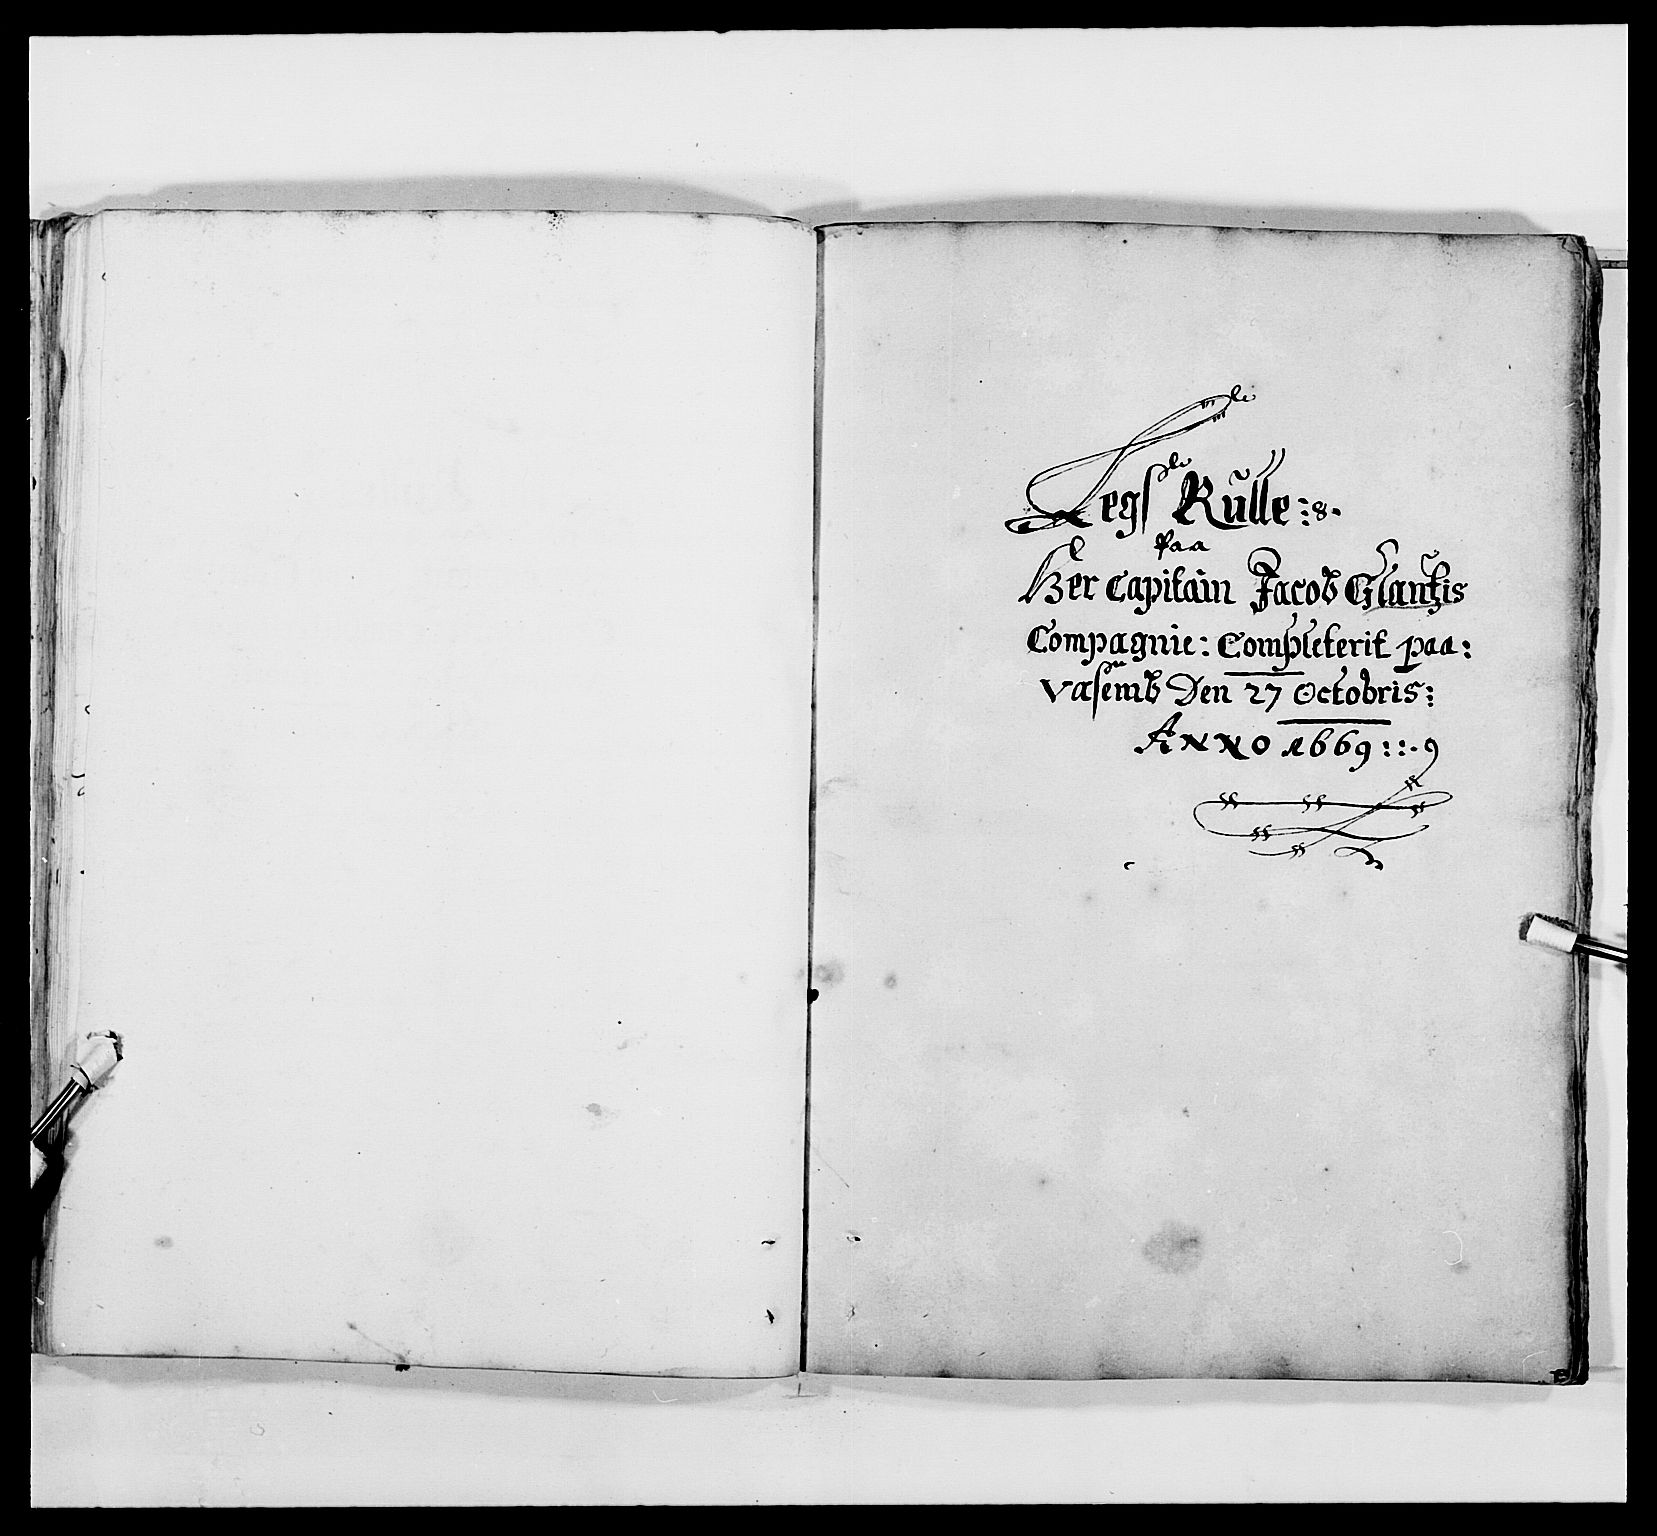 Legs Rulle:
paa
Her Capitain Jacob Glantzis
Compagnie: Completerit paa:
Den 27 Octobris:
ANNO 1669